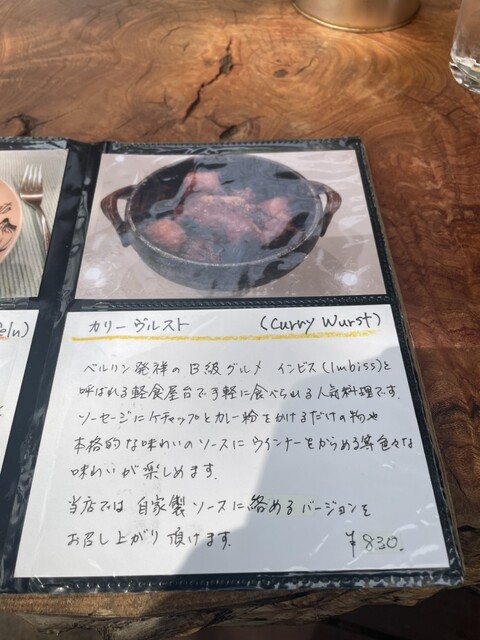 カリーヴルスト (Curry Wurst)
ベルリン発祥のB級グルメ インビス(Imbiss)と
呼ばれる軽食屋台で手軽に食べられる人気料理です.
ソーセージにケチャップとカレー粉をかけるだけの物や
本格的な味わいのソースにウインナーをからめる等色々な
味わいが楽しめます.
当店では自家製ソースに絡めるバージョンを
お召し上がり頂けます.
¥830.
eln)